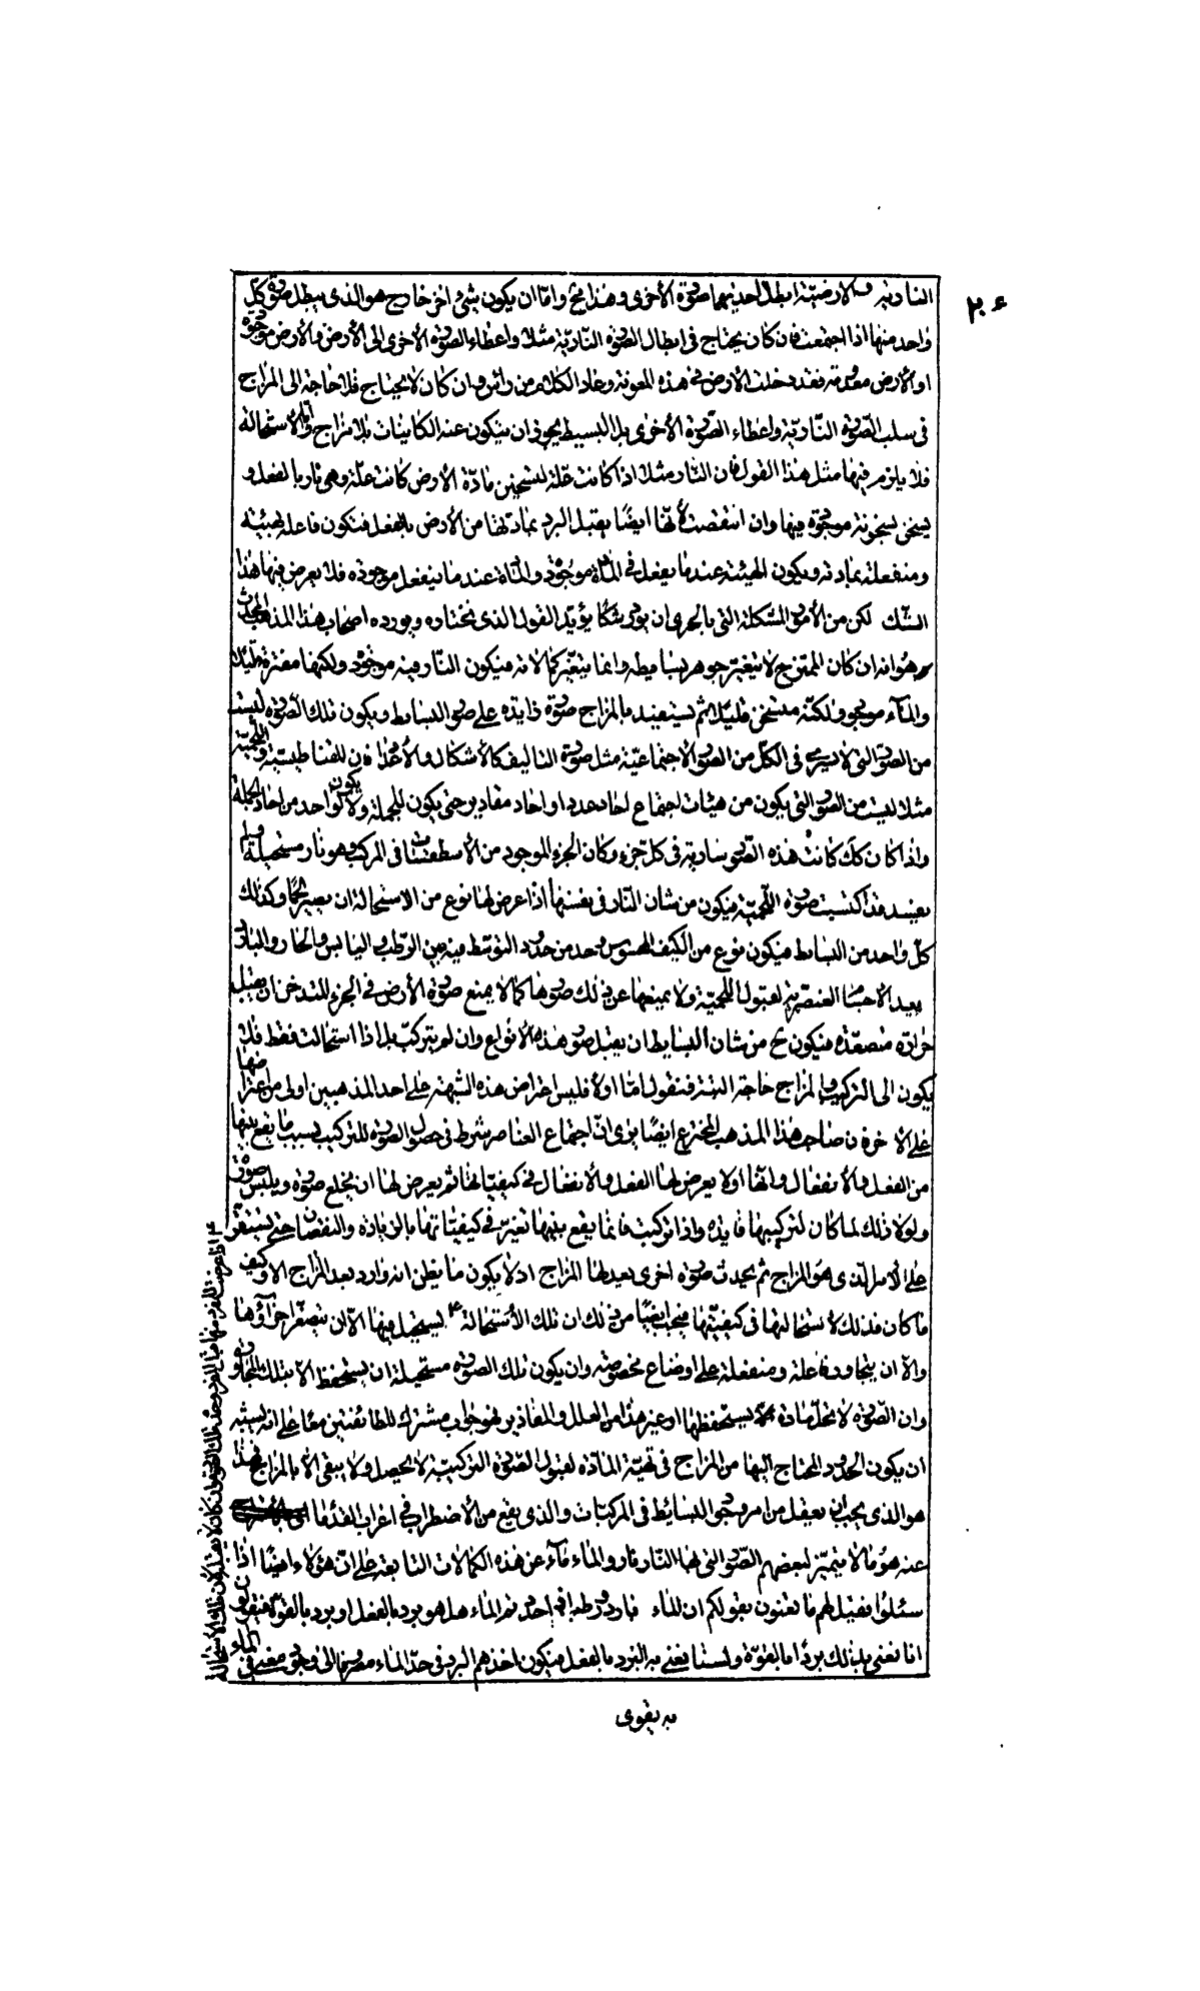 ٢٠٤
النارية والارضية ابطل احديهما صورة الأخرى وهذا مح واما ان يكون شئ اخر خارج هو الذى يبطل صورة كل
واحد منها اذا اجتمعت فان كان يحتاج فى ابطال الصورة النارية مثلا واعطاء الصورة الأخرى الى الأرض والأرض موجودة
او الأرض معدومة فقد دخلت الأرض فى هذه المعونة وعاد الكلام من رأس وان كان لا يحتاج فلا حاجة الى المزاج
فى سلب الصورة النارية واعطاء الصورة الأخرى بل البسيط يجوز ان يتكون عنه الكائنات بلا مزاج واما الأستحالة
فلا يلزم فيها مثل هذا القول فان النار مثلا اذا كانت علة لتسخين مادة الأرض كانت علة وهى نار بالفعل و
يسخن بسخونة موجودة فيها وان انتقصت لأنها ايضا يقبل البرد بمادتها من الأرض بالفعل فتكون فاعلة بهيئته
ومنفعلة بمادته ويكون الهيئة عندما يفعل فى المادة موجودة والمادة عندما ينفعل موجودة فلا يعرض فيها هذا
الشك لكن من الأمور المشكلة التى بالحرى ان يورد شكا يؤيد القول الذى نختاره ويورده اصحاب هذا المذهب المحدث
وهو انه ان كان الممتزج لا يتغير جوهر بسايطه وانما يتغير كمالاته فيكون النار فيه موجودة ولكنها مفترة قليلا
والماء موجود ولكنه مسخن قليلا ثم يستفيد بالمزاج صورة زايدة على صور البسايط ويكون تلك الصورة ليست
من الصور التى لا يسرى فى الكل من الصور الأجتماعية مثل صورة التاليف كالأشكال والأعداد فان المغناطيسية واللحمية
مثلا ليست من الصور التى يكون من هيئات اجتماع احاد عدد او احاد مقادير حتى يكون للجملة ولا يكون لواحد من احاد الجملة
واذا كان كك كانت هذه الصور سارية فى كل جزء وكان الجزء الموجود من الأسطقسات فى المركب وهو نار مستحيلة ولم
يفسد قد اكتسبت صورة اللحمية فيكون من شان النار فى نفسها اذا عرض لها نوع من الاستحالة ان يصير لحما وكذلك
كل واحد من البسايط فيكون نوع من الكيف المحسوس وحد من حدود التوسط فيه بين الرطب واليابس والحار والبارد
يعد الأجسام العنصرية لقبول اللحمية ولا يمنعها عن ذلك صورها كما لا يمنع صورة الأرض فى الجزء المتدخن ان يقبل
حرارة مصعدة فيكون ح من شان البسايط ان يقبل صور هذه الأنواع وان لم يتركب بل اذا استحالت فقط فلا
يكون الى التركيب والمزاج حاجة البتة فنقول اما اولا فليس اعتراض هذه الشبهة على احد المذهبين اولى من اعتراضها
على الأخر فان صاحب هذا المذهب المخترع ايضا يرى ان اجتماع العناصر شرط فى حصول الصورة للتركيب بسبب ما يقع بينها
من الفعل والأنفعال وانها اولا يعرض لها الفعل والأنفعال فى كيفياتها ثم يعرض لها ان يخلع صورة ويلبس صورة
ولولا ذلك لما كان لتركيبها فايدة واذا تركبت فانما يقع بينها تغير فى كيفياتها بالزيادة والنقصان حتى يستقر
على الأمر الذى هو المزاج ثم يحدث صورة اخرى يعد لها المزاج اذ لا يكون ما يظن انه وارد بعد المزاج الا وكيف
ما كان فذلك لأستحالتها فى كيفيتها فيجب ايضا من ذلك ان تلك الأستحالة يستحيل فيها الا ان يتصغر اجزاؤها
والا ان يتجاور فاعلة ومنفعلة على اوضاع مخصوصة وان يكون تلك الصورة مستحيلة ان يستحفظ الا بتلك المجاورة و
وان الصورة لا تحل مادة لا يستحفظها او غير هذا من العلل والمقادير فهو جواب مشترك للطائفتين معا على انه يشبه
ان يكون الحدود المحتاج اليها من المزاج فى تهيئة المادة لقبول الصورة التركيبية لا يحصل ولا يبقى الا بالمزاج فهذا
هو الذى يجب ان يعقل من امر وجود البسائط فى المركبات والذى يقع من الأضطراب فى اعراب القدماء
عنه هو ما لا يتميز لبعضهم الصور التى بها النار نار والماء ماء عن هذه الكمالات التابعة على ان هؤلاء ايضا اذا
سئلوا فقيل لهم ما تعنون بقولكم ان الماء بارد رطب اخذتم الماء هل هو برد بالفعل او برد بالقوة فيقولون
انا نعنى بذلك بردا بالقوة ولسنا نعنى به البرد بالفعل فيكون اخذهم البرد فى حد الماء مصروفا الى معنى فى الماء
به يقوى